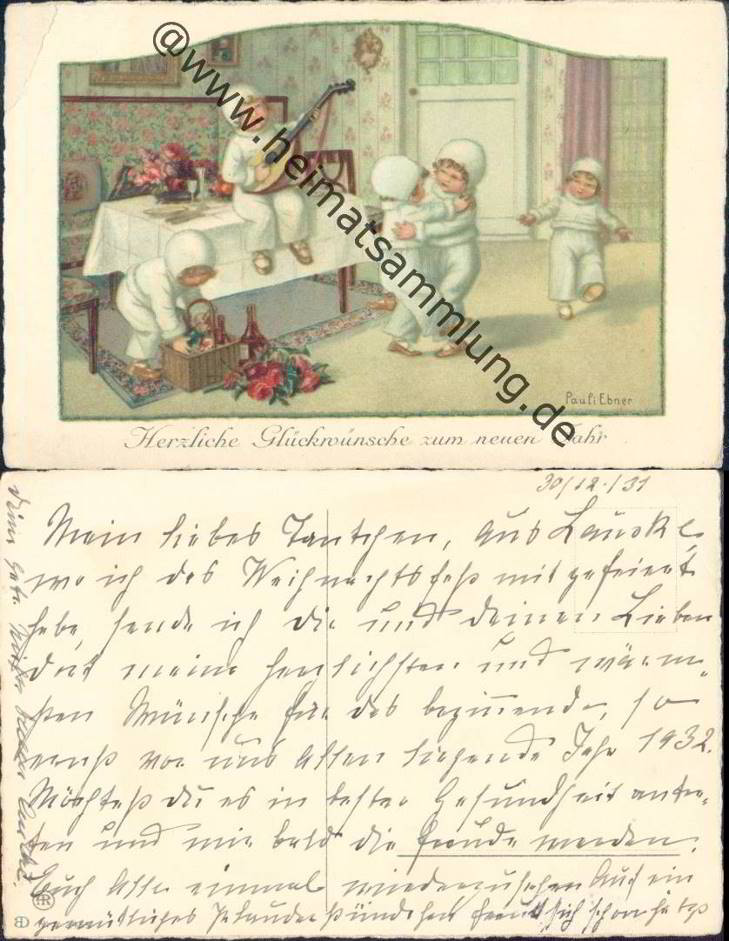 @www.heimatsammlung.de
Pauli Ebner
Herzliche Glückwünsche zum neuen Jahr
30/12./31
Mein liebes Tantchen, aus Lauske
wo ich das Weihnachtsfest mit gefeiert
habe, sende ich dir und deinen Lieben
dort meine herzlichsten und wärm-
sten Wünsche für das beginnende, so
ernst vor uns Allen liegende Jahr 1932.
Möchtest du es in bester Gesundheit antre-
ten und mir bald die Freude werden,
Euch Alle einmal wiederzusehen. Auf ein
gemütliches Plauderstündchen freut sich schon
HR